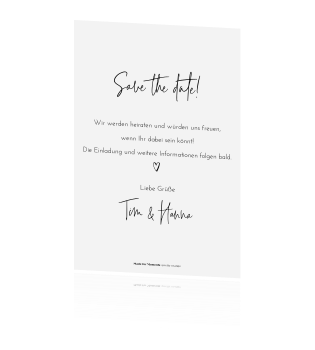 Save the date!
Wir werden heiraten und würden uns freuen,
wenn Ihr dabei sein könnt!
Die Einladung und weitere Informationen folgen bald.
Liebe Grüße
Tim & Hanna